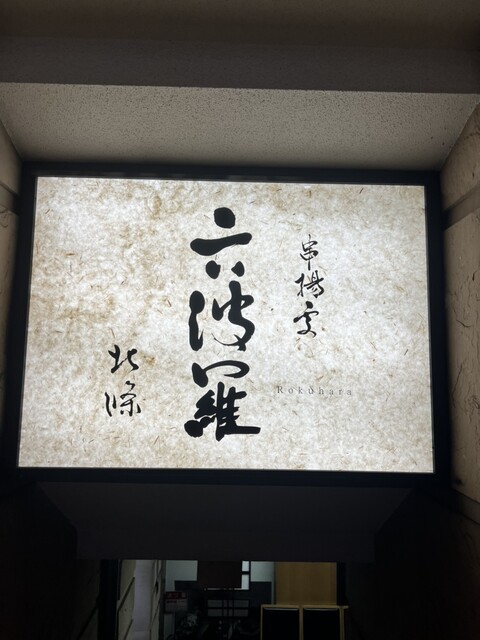 串揚処
六波羅
Rokuhara
北條